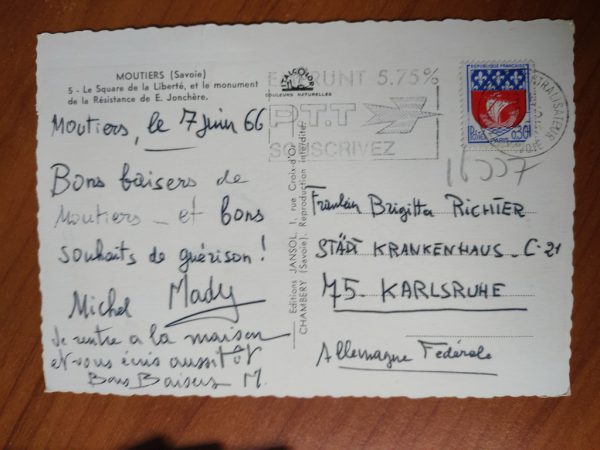 MOUTIERS (Savoie)
5 - Le Square de la Liberté, et le monument
de la Résistance de E. Jonchère.
Moutiers, le 7 juin 66
Bons baisers de
Moutiers - et bons
souhaits de guérison !
Michel Mady
Je rentre à la maison
et vous écris aussitôt
Bons Baisers M.
ITALCOLOR
COULEURS NATURELLES
EMPRUNT 5.75%
P.T.T
SOUSCRIVEZ
REPUBLIQUE FRANÇAISE
Postes 0,30
PARIS
16337
Editions JANSOL, 1, rue Croix-d'Or
CHAMBERY (Savoie). Reproduction interdite.
Fraulein Brigitta RICHTER
STÄDT KRANKENHAUS - C-21
75. KARLSRUHE
Allemagne Fédérale